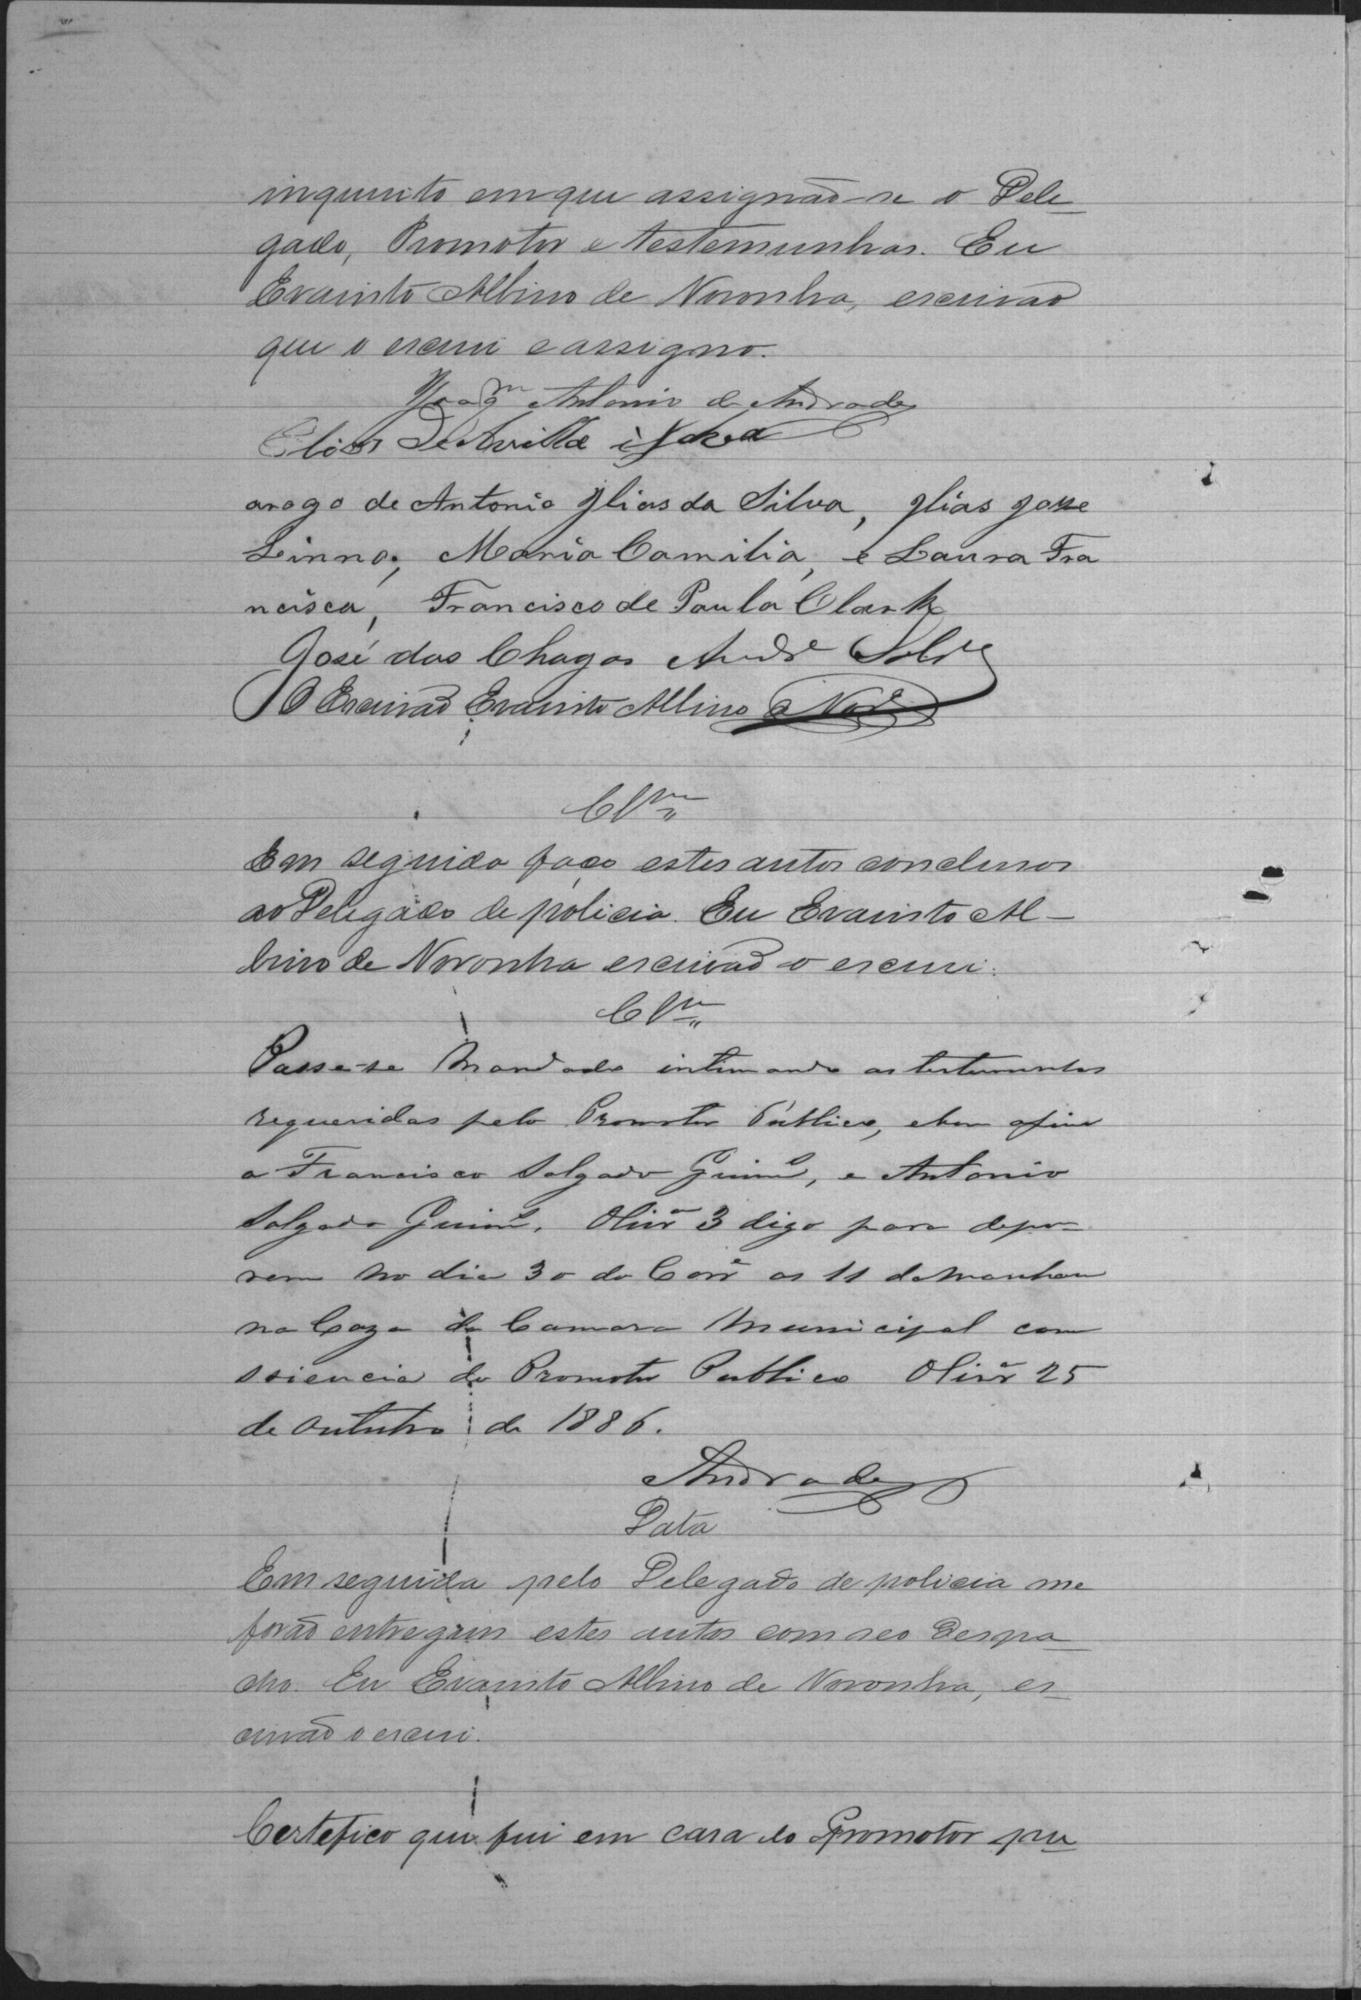 inquerito em que assignão-se o Dele-
gado, Promotor e testemunhas. Eu
Evaristo Albino de Noronha, escrivão
que o escrevi e assigno.
Joaqm Antonio de Andrade
Elias de Avilla
arogo de Antonio Glias da Silva, Glias Josse
Linno, Maria Camilia, e Laura Fra
ncisca, Francisco de Paula Clark
José das Chagas Andre Silva
O Escrivão Evaristo Albino de Nora
Clm
Em seguida faço estes autos conclusos
ao Delegado de policia. Eu Evaristo Al-
bino de Noronha escrivão o escrevi.
Clm
Passe-se Mandado intimando as testemunhas
requeridas pelo Promotor Publico, e bem afim
a Francisco Salgado Guimes, e Antonio
Salgado Guimes. Olivra 3 digo para depo-
rem no dia 30 do Corre as 11 da manham
na Caza da Camara Municipal com
ssiencia do Promotor Publico Olivra 25
de outubro de 1886.
Andrade
Data
Em seguida pelo Delegado de policia me
forão entregues estes autos com seo despa-
cho. Eu Evaristo Albino de Noronha, es-
crivão o escrevi.
Certefico que fui em casa do Promotor pu